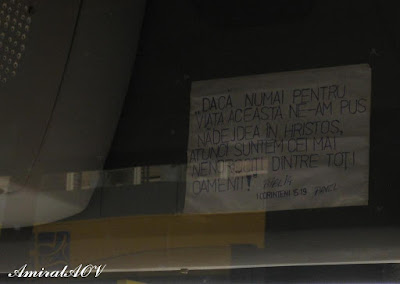 DACĂ NUMAI PENTRU
VIAȚA ACEASTA NE-AM PUS
NĂDEJDEA ÎN HRISTOS,
ATUNCI SUNTEM CEI MAI
NENOROCIȚI DINTRE TOȚI
OAMENII!
I CORINTENI 15:19
AmiralAOV